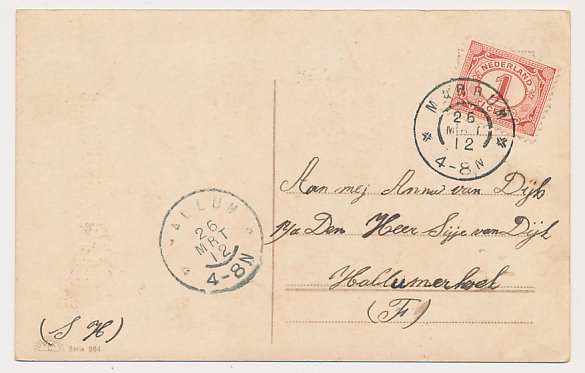 NEDERLAND
1
CENT
MARRUM
26
MRT
12
4-8N
Aan mej Anna van Dijk
p/a Den Heer Sijje van Dijk
Hallumerhoek
(F)
HALLUM
26
MRT
12
4-8N
(S H)
Serie 984